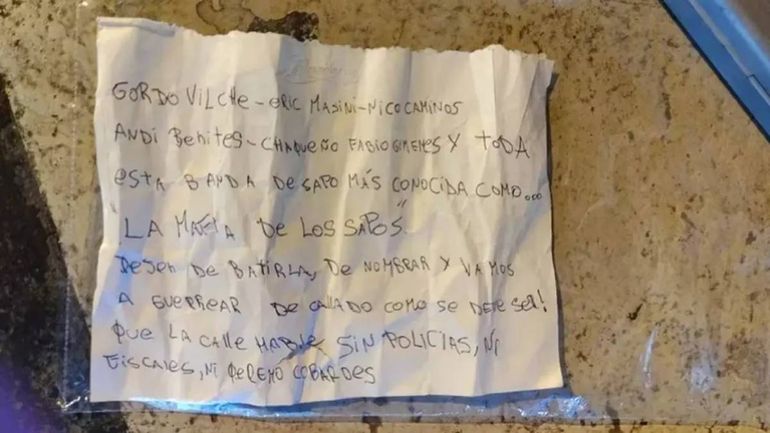 GORDO VILCHE - ERIC MASINI - NICO CAMINOS
ANDI BENITES - CHAQUEÑO FABIO GIMENES Y TODA
ESTA BANDA DE SAPO MÁS CONOCIDA COMO...
"LA MAFIA DE LOS SAPOS"
DEJEN DE BATIRLA, DE NOMBRAR Y VAMOS
A GUERREAR DE CALLADO COMO SE DEBE SER!
QUE LA CALLE HABLE SIN POLICIAS, NI
FISCALES, NI PERENO COBARDES